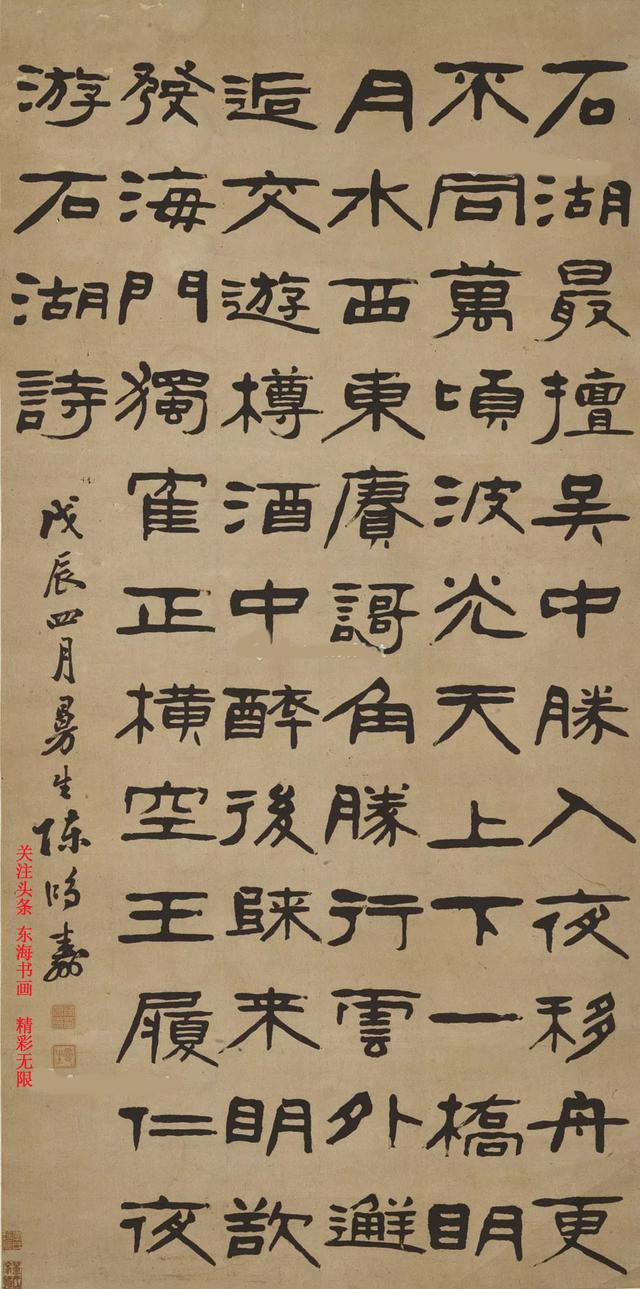 石湖最擅吴中勝入夜移舟更
不同萬頃波光天上下一橋眀
月水西東賡謌角勝行雲外邂
逅交遊樽酒中醉後来眀欲
發海門獨隺正橫空王履仁夜
游石湖詩
戊辰四月曼生陳鴻壽
关注头条 东海书画 精彩无限